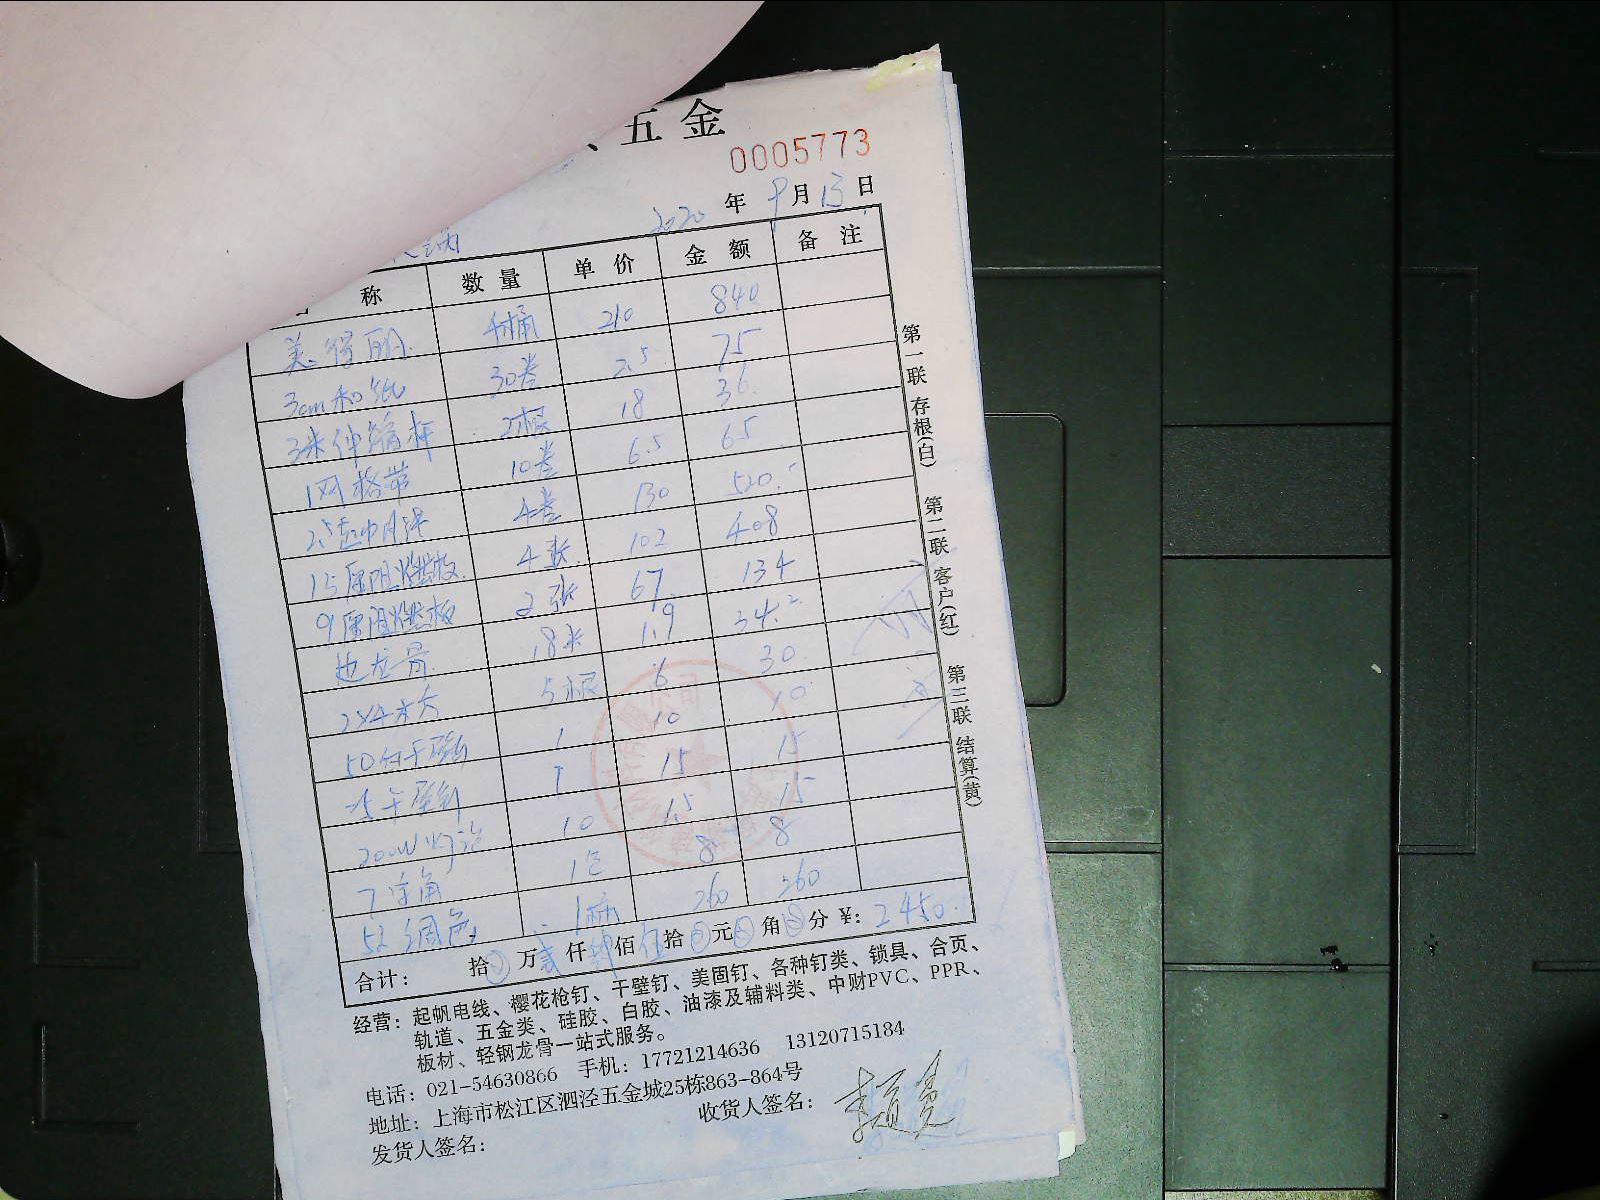 、五金
0005773
2020 年 9 月 13 日
称 数量 单价 金额 备注
美得丽 4桶 210 840
3cm和纸 30卷 2.5 75
3米伸缩杆 2根 18 36
网格带 10卷 6.5 65
2.5 4卷 130 520
15厘阻燃板 4张 102 408
9厘阻燃板 2张 67 134
边龙骨 18米 1.9 34.2
2X4木方 5根 6 30
50 1 10 10
干壁钉 1 15 15
200W灯泡 10 1.5 15
7字角 1包 8 8
52调色 1桶 260 260
合计: 拾 万 贰 仟 肆 佰 伍 拾 元 角 分 ¥: 2450
第一联 存根(白) 第二联 客户(红) 第三联 结算(黄)
经营: 起帆电线、樱花枪钉、干壁钉、美固钉、各种钉类、锁具、合页、
轨道、五金类、硅胶、白胶、油漆及辅料类、中财PVC、PPR、
板材、轻钢龙骨一站式服务。
电话: 021-54630866 手机: 17721214636 13120715184
地址: 上海市松江区泗泾五金城25栋863-864号
发货人签名: 收货人签名: